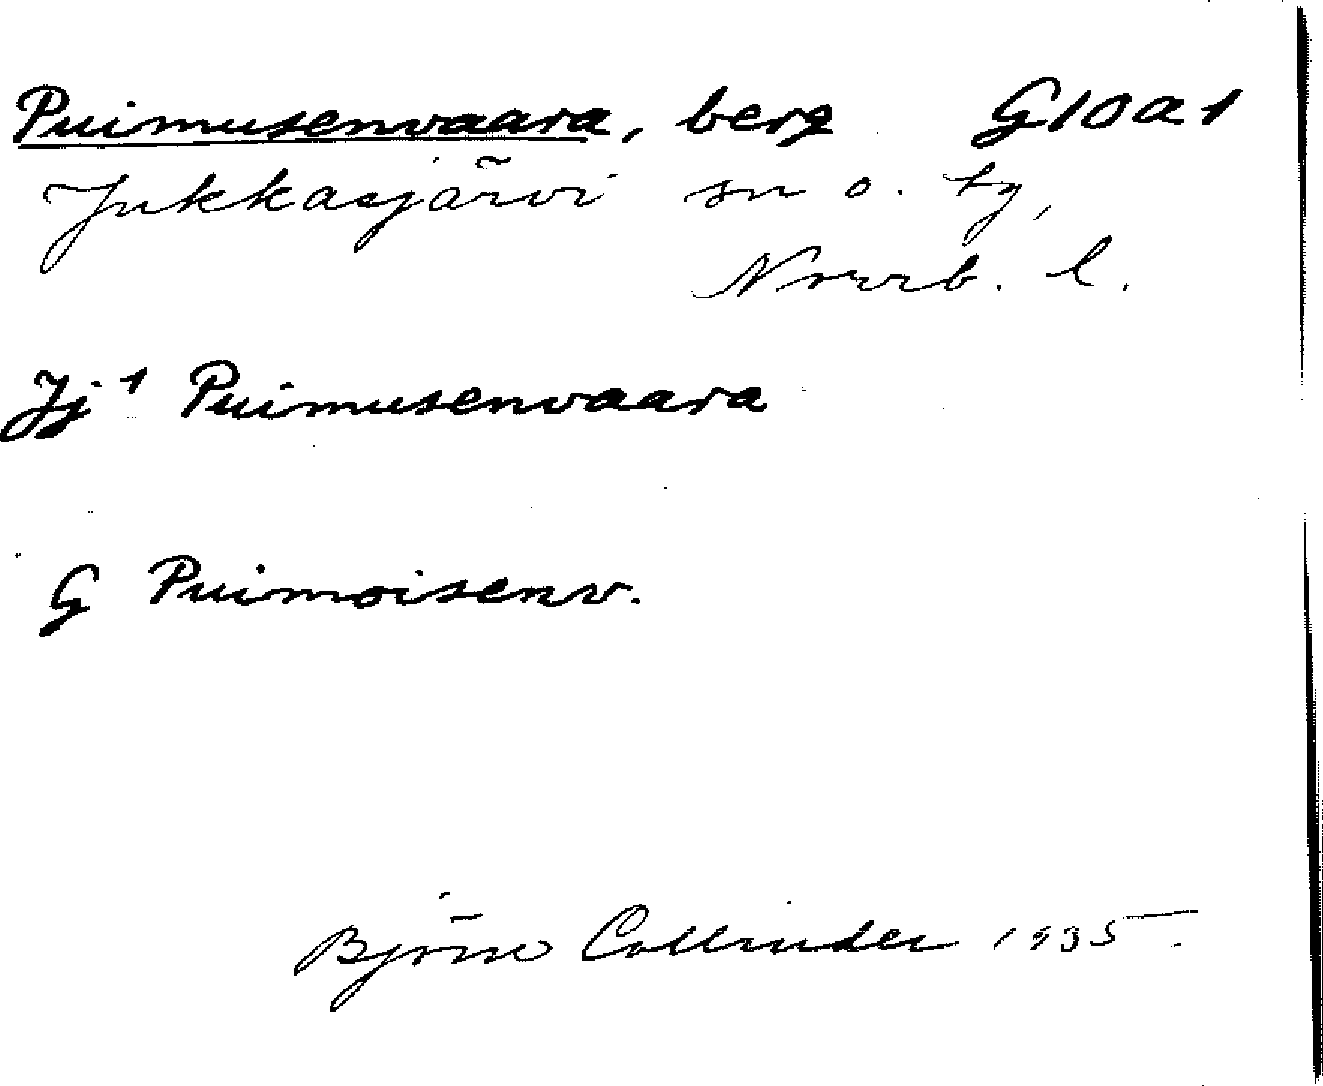 Puimusenvaara, berg G10a1
Jukkasjärvi sn o. tg,
Norrb. l.
Jj 1 Puimusenvaara
G Puimoisenv.
Björn Collinder 1935.